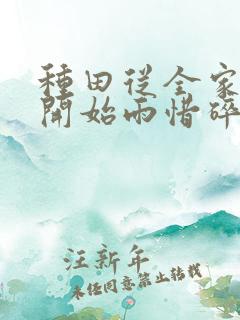 種田從全家
開始雨惜碎
汪新年
未经同意禁止转载